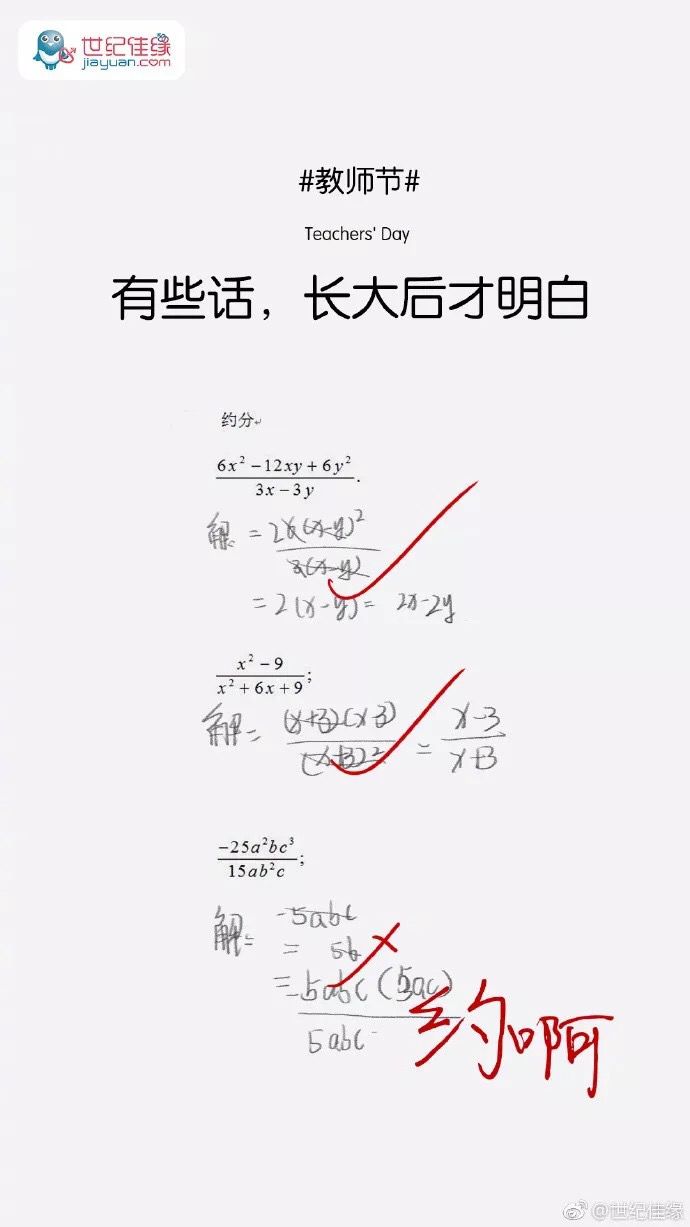 世纪佳缘
jiayuan.com
#教师节#
Teachers' Day
有些话，长大后才明白
约分
6x² − 12xy + 6y²
3x − 3y .
解: = 2x(x-y)²
3(x-y)
= 2(x-y) = 2x-2y
x² − 9
x² + 6x + 9 ;
解 = (x+3)(x-3)
(x+3)² = x-3
x+3
−25a²bc³
15ab²c ;
解: -5abc
= 5b
= -5abc (5ac)
5abc
约啊
@世纪佳缘